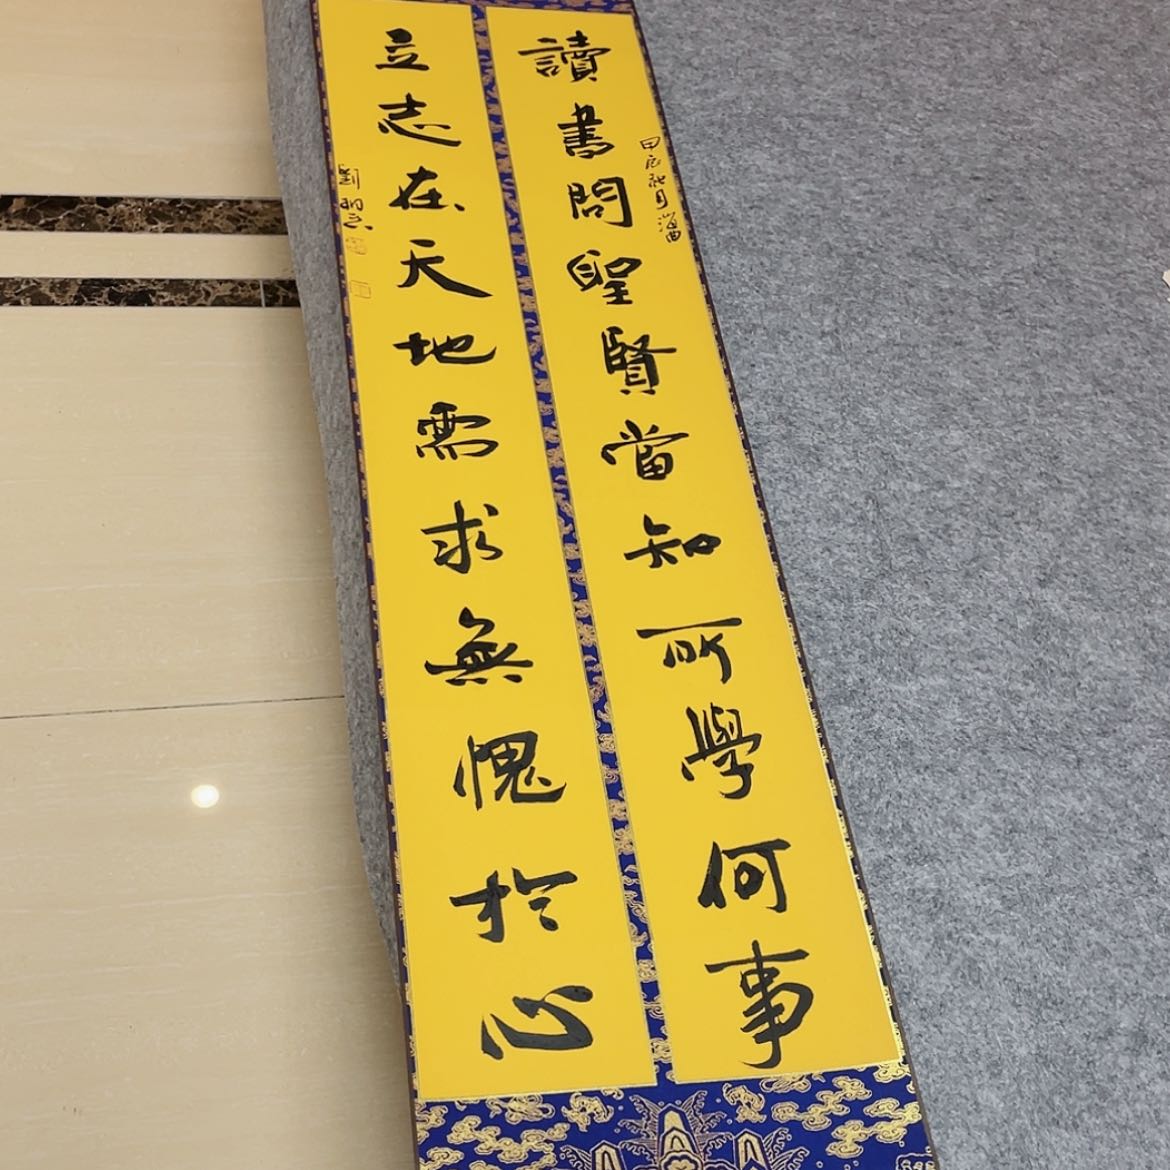 讀書問聖賢當知所學何事
甲辰秋月
立志在天地需求無愧於心